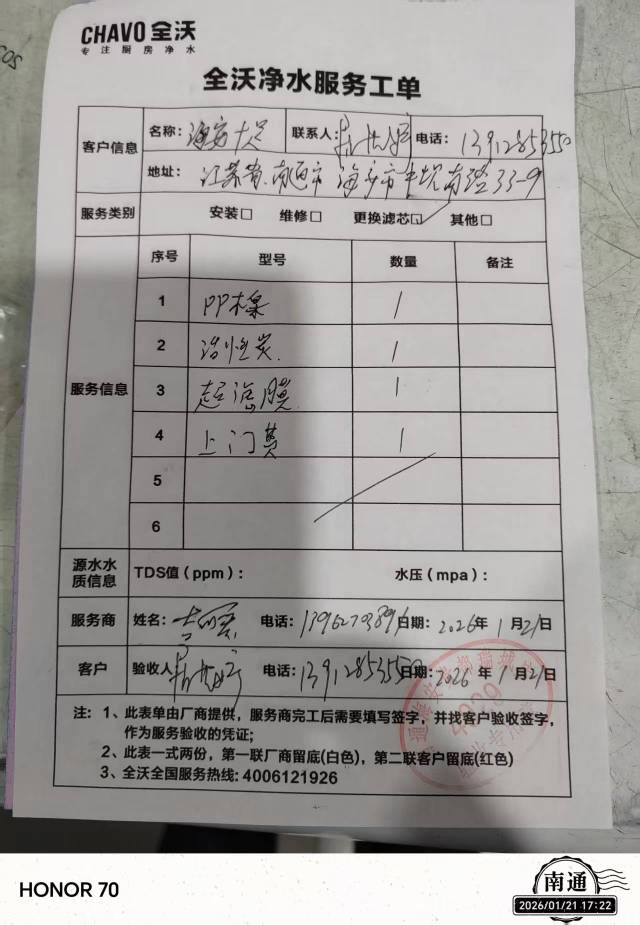 CHAVO 全沃
专注厨房净水
全沃净水服务工单
客户信息 名称: 联系人: 电话: 13912853550
地址: 江苏省南通市海安市 33-9
服务类别 安装□ 维修□ 更换滤芯☑ 其他□
序号 型号 数量 备注
服务信息
1 PP棉 1
2 活性炭 1
3 超滤膜 1
4 上门费 1
5
6
源水水质信息 TDS值(ppm): 水压(mpa):
服务商 姓名: 电话: 日期: 2026年1月21日
客户 验收人 电话: 13912853550 日期: 2026年1月21日
注: 1、此表单由厂商提供, 服务商完工后需要填写签字, 并找客户验收签字,
作为服务验收的凭证;
2、此表一式两份, 第一联厂商留底(白色), 第二联客户留底(红色)
3、全沃全国服务热线: 4006121926
HONOR 70
南通
2026/01/21 17:22